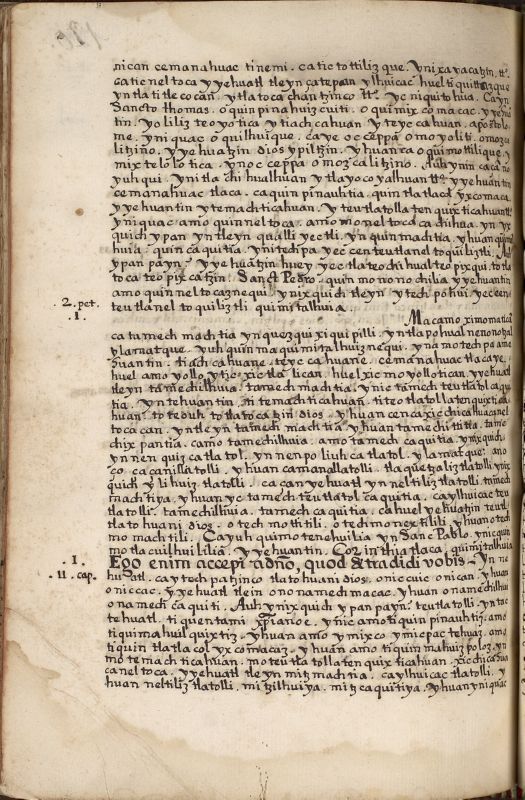 nican cemanahuac tinemi. catic tottiliz que. ynixayacatzin. tto.
catic nel toca yyehuatl tleyn çatepan ylhuicac huel tiquittazque
yntlatitlecocan. ytlatocachantzinco tto. yc niquitohua. Ca yn
Sancto thomas. oquinpinahuizcuiti. oquimixcomacac. yyehuan
tin. yoliliz teoyotica ytiachcahuan yteyccahuan. apostolo
me. yniquac oquilhuique. caye oc ceppa omoyoliti. omozca
litzino. yyehuatzin dios ypiltzin. yhuan ca oquimottilique. y
mixtelolotica. ynoc ceppa omozcalitzino. Auh ynin ca ça no
yuhqui. ynitlachihualhuan ytlayocoyalhuan tto. yyehuantin
cemanahuac tlaca. ca quinpinauhtia. quintlatlacal yxcomaca.
yyehuantin ytemachticahuan. yteutlatoltenquixticahuan tto.
yniquac amo quinneltoca. amo monneltoca ca chihua. yn yx
quich ypan yntleyn qualli yectli. ynquinmachtia. yhuan quim
huia. quincaquitia. ynitechpa yec centeutlaneltoquiliztli. Auh
ypanpayn. yyehuatzin huey yectlateochihualteopixqui. totla
tocateopixcatzin. Sanct Pedro. quinmononochilia yyehuantin
amo quinneltocaznequi. ynixquich tleyn ytechpohui yeccen
teutlaneltoquiliztli. quimitalhuia.
2. pet.
1.
Macamo ximomatica
catamechmachtia ynquezquixiquipilli. yntlapohual nenonotzal
ylamatque. yuhquinmaquimitalhuiznequi. ynamotechpa ame
huantin. tiachcahuane. teyccahuane. cemanahuac tlacaye.
huel amoyollo ytic xictlalican. huel xicmoyollotican yyehuatl
tleyn tamechilhuia. tamechmachtia. ynic tamechteutlatolcaqui
tia. yntehuantin. titemachticahuan. titeotlatoltenquixtica
huan. toteouh totlatocatzin dios. yhuan cenca xicchicahuacanel
tocacan. yntleyn tamechmachtia yhuan tamechittitia. tame
chixpantia. camo tamechilhuia. amo tamechcaquitia ynixquich
yn nenquizcatlatol. yn nenpoliuhcatlatol. ylamatque: ano
ço. cacamillatolli. yhuan camanallatolli. tlaquetzaliztlatolli ynix
quich yllihuiz tlatolli. caçanyehuatl ynneltiliztlatolli tamech
machtiya. yhuan yc tamechteutlatolcaquitia. caylhuicac teu
tlatolli. tamechilhuia. tamechcaquitia. cahuel yehuatzin teutl
tlatohuani dios. otechmottitili. otechmonextilili. yhuan otech
momachtili. Cayuh quimotenehuilia yn Sanc Pablo. ynicquin
motlacuilhuililiâ. yyehuantin. Corinthia tlaca, quimitalhuia
1.
11. cap.
Ego enim accepi a dño, quod & tradidi vobis. yn ne
huatl. caytechpatzinco tlatohuani dios. oniccuic onican. yhuan
oniccac. yyehuatl tlein onamechmacac. yhuan onamechilhui
onamechcaquiti. Auh ynixquich ypanpayn. teutlatolli. yntac
tehuatl. tiquentami xpiano e. ynic amo tiquinpinauhtiz. amo
tiquimahuilquixtiz. yhuan amo ymixco ymicpac tehuaz. amo
tiquintlatlacolyxcomacaz. yhuan amo tiquinmahuizpoloz. yn
motemachticahuan. moteutlatoltenquixticahuan. xicchicahua
caneltoca. yyehuatl tleyn mitzmachtia. caylhuicac tlatolli. y
huan neltiliz tlatolli. mitzilhuiya. mitzcaquitiya. yhuan yniquac